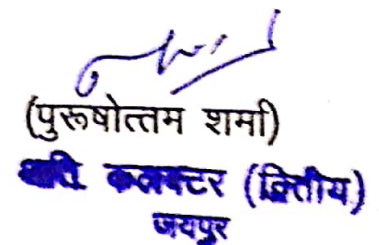 (पुरूषोत्तम शर्मा)
अति. कलक्टर (द्वितीय)
जयपुर